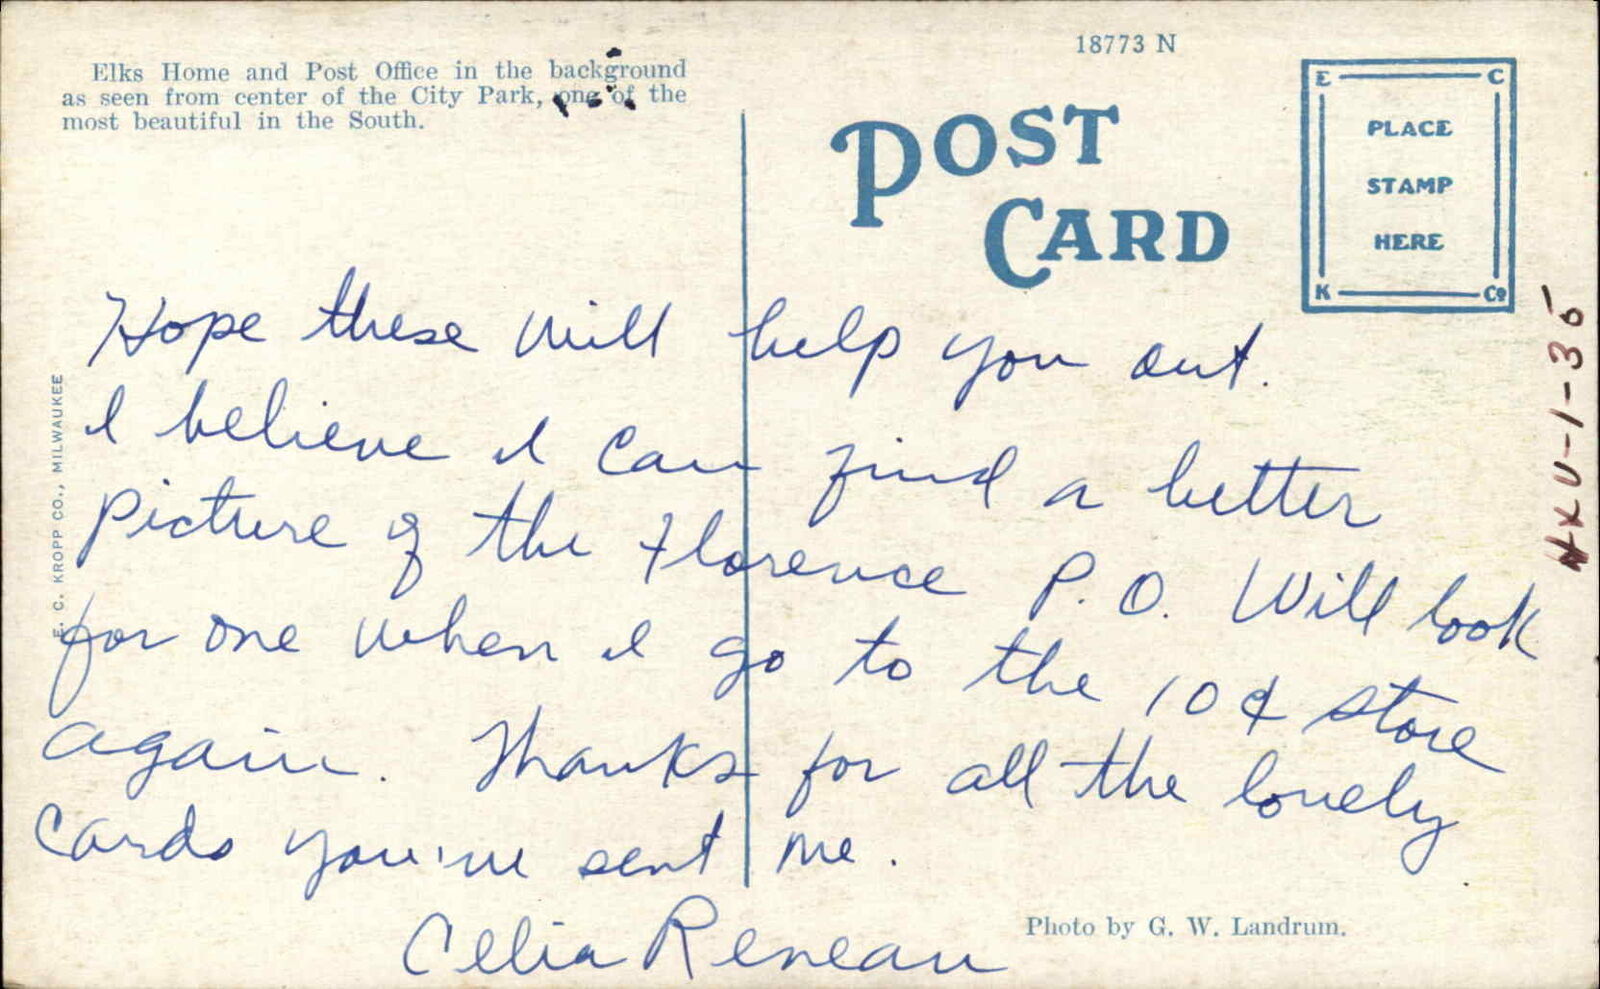 18773 N
Elks Home and Post Office in the background
as seen from center of the City Park, one of the
most beautiful in the South.
POST
CARD
E C
PLACE
STAMP
HERE
K Co
Hope these will help you out.
I believe I can find a better
picture of the Florence P. O. Will look
for one when I go to the 10¢ store
again. Thanks for all the lovely
cards you've sent me.
Celia Reneau
Photo by G. W. Landrum.
E. C. KROPP CO., MILWAUKEE